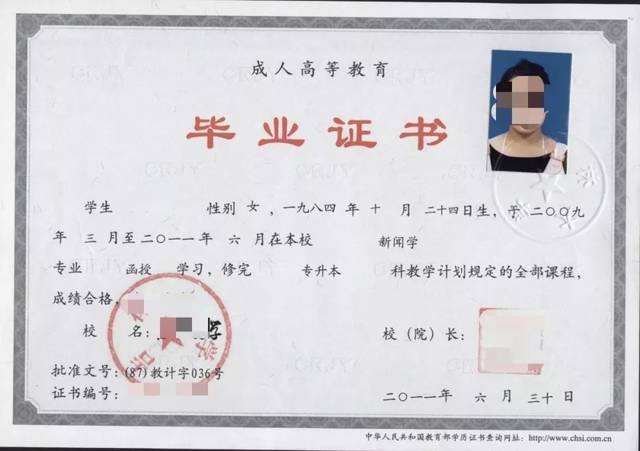 成人高等教育
毕业证书
学生 性别 女，一九八四 年 十 月 二十四日生，于 二〇〇九
年 三 月至二〇一一年 六 月在本校 新闻学
专业 函授 学习，修完 专升本 科教学计划规定的全部课程，
成绩合格，
校 名： 学 校（院）长：
批准文号：(87)教计字036号
证书编号： 二〇一一年 六 月 三十日
中华人民共和国教育部学历证书查询网址：http://www.chsi.com.cn